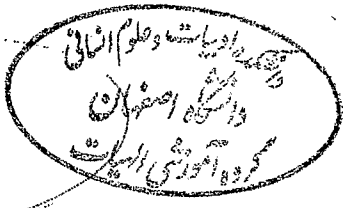 دانشکده ادبیات و علوم انسانی
دانشگاه اصفهان
گروه آموزشی الهیات